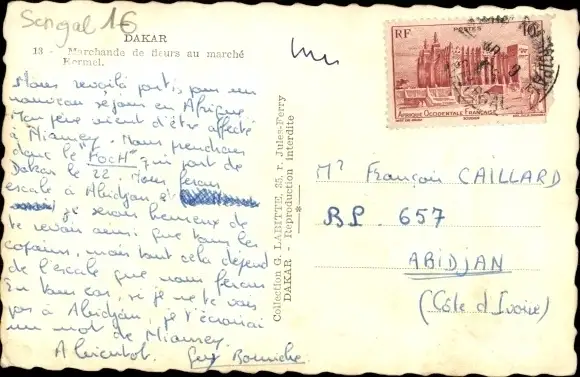 Senegal 16
DAKAR
13 - Marchande de fleurs au marché
Kermel.
Nous revoilà partis pour un
nouveau séjour en Afrique.
Mon père vient d'être affecté
à Niamey. Nous prendrons
donc le "FOCH" qui part de
Dakar le 22. Nous ferons
escale à Abidjan, et
je serais heureux de
te revoir ainsi que tous les
copains, mais tout cela dépend
de l'escale que nous ferons
En tous cas, si je ne te vois
pas à Abidjan, je t'écrirai
un mot de Niamey.
A bientôt. Guy
Collection G. LABITTE, 25, r. Jules-Ferry
DAKAR - Reproduction interdite
RF
POSTES
AFRIQUE OCCIDENTALE FRANÇAISE
SENEGAL
Mr François CAILLARD
BP. 657
ABIDJAN
(Côte d'Ivoire)